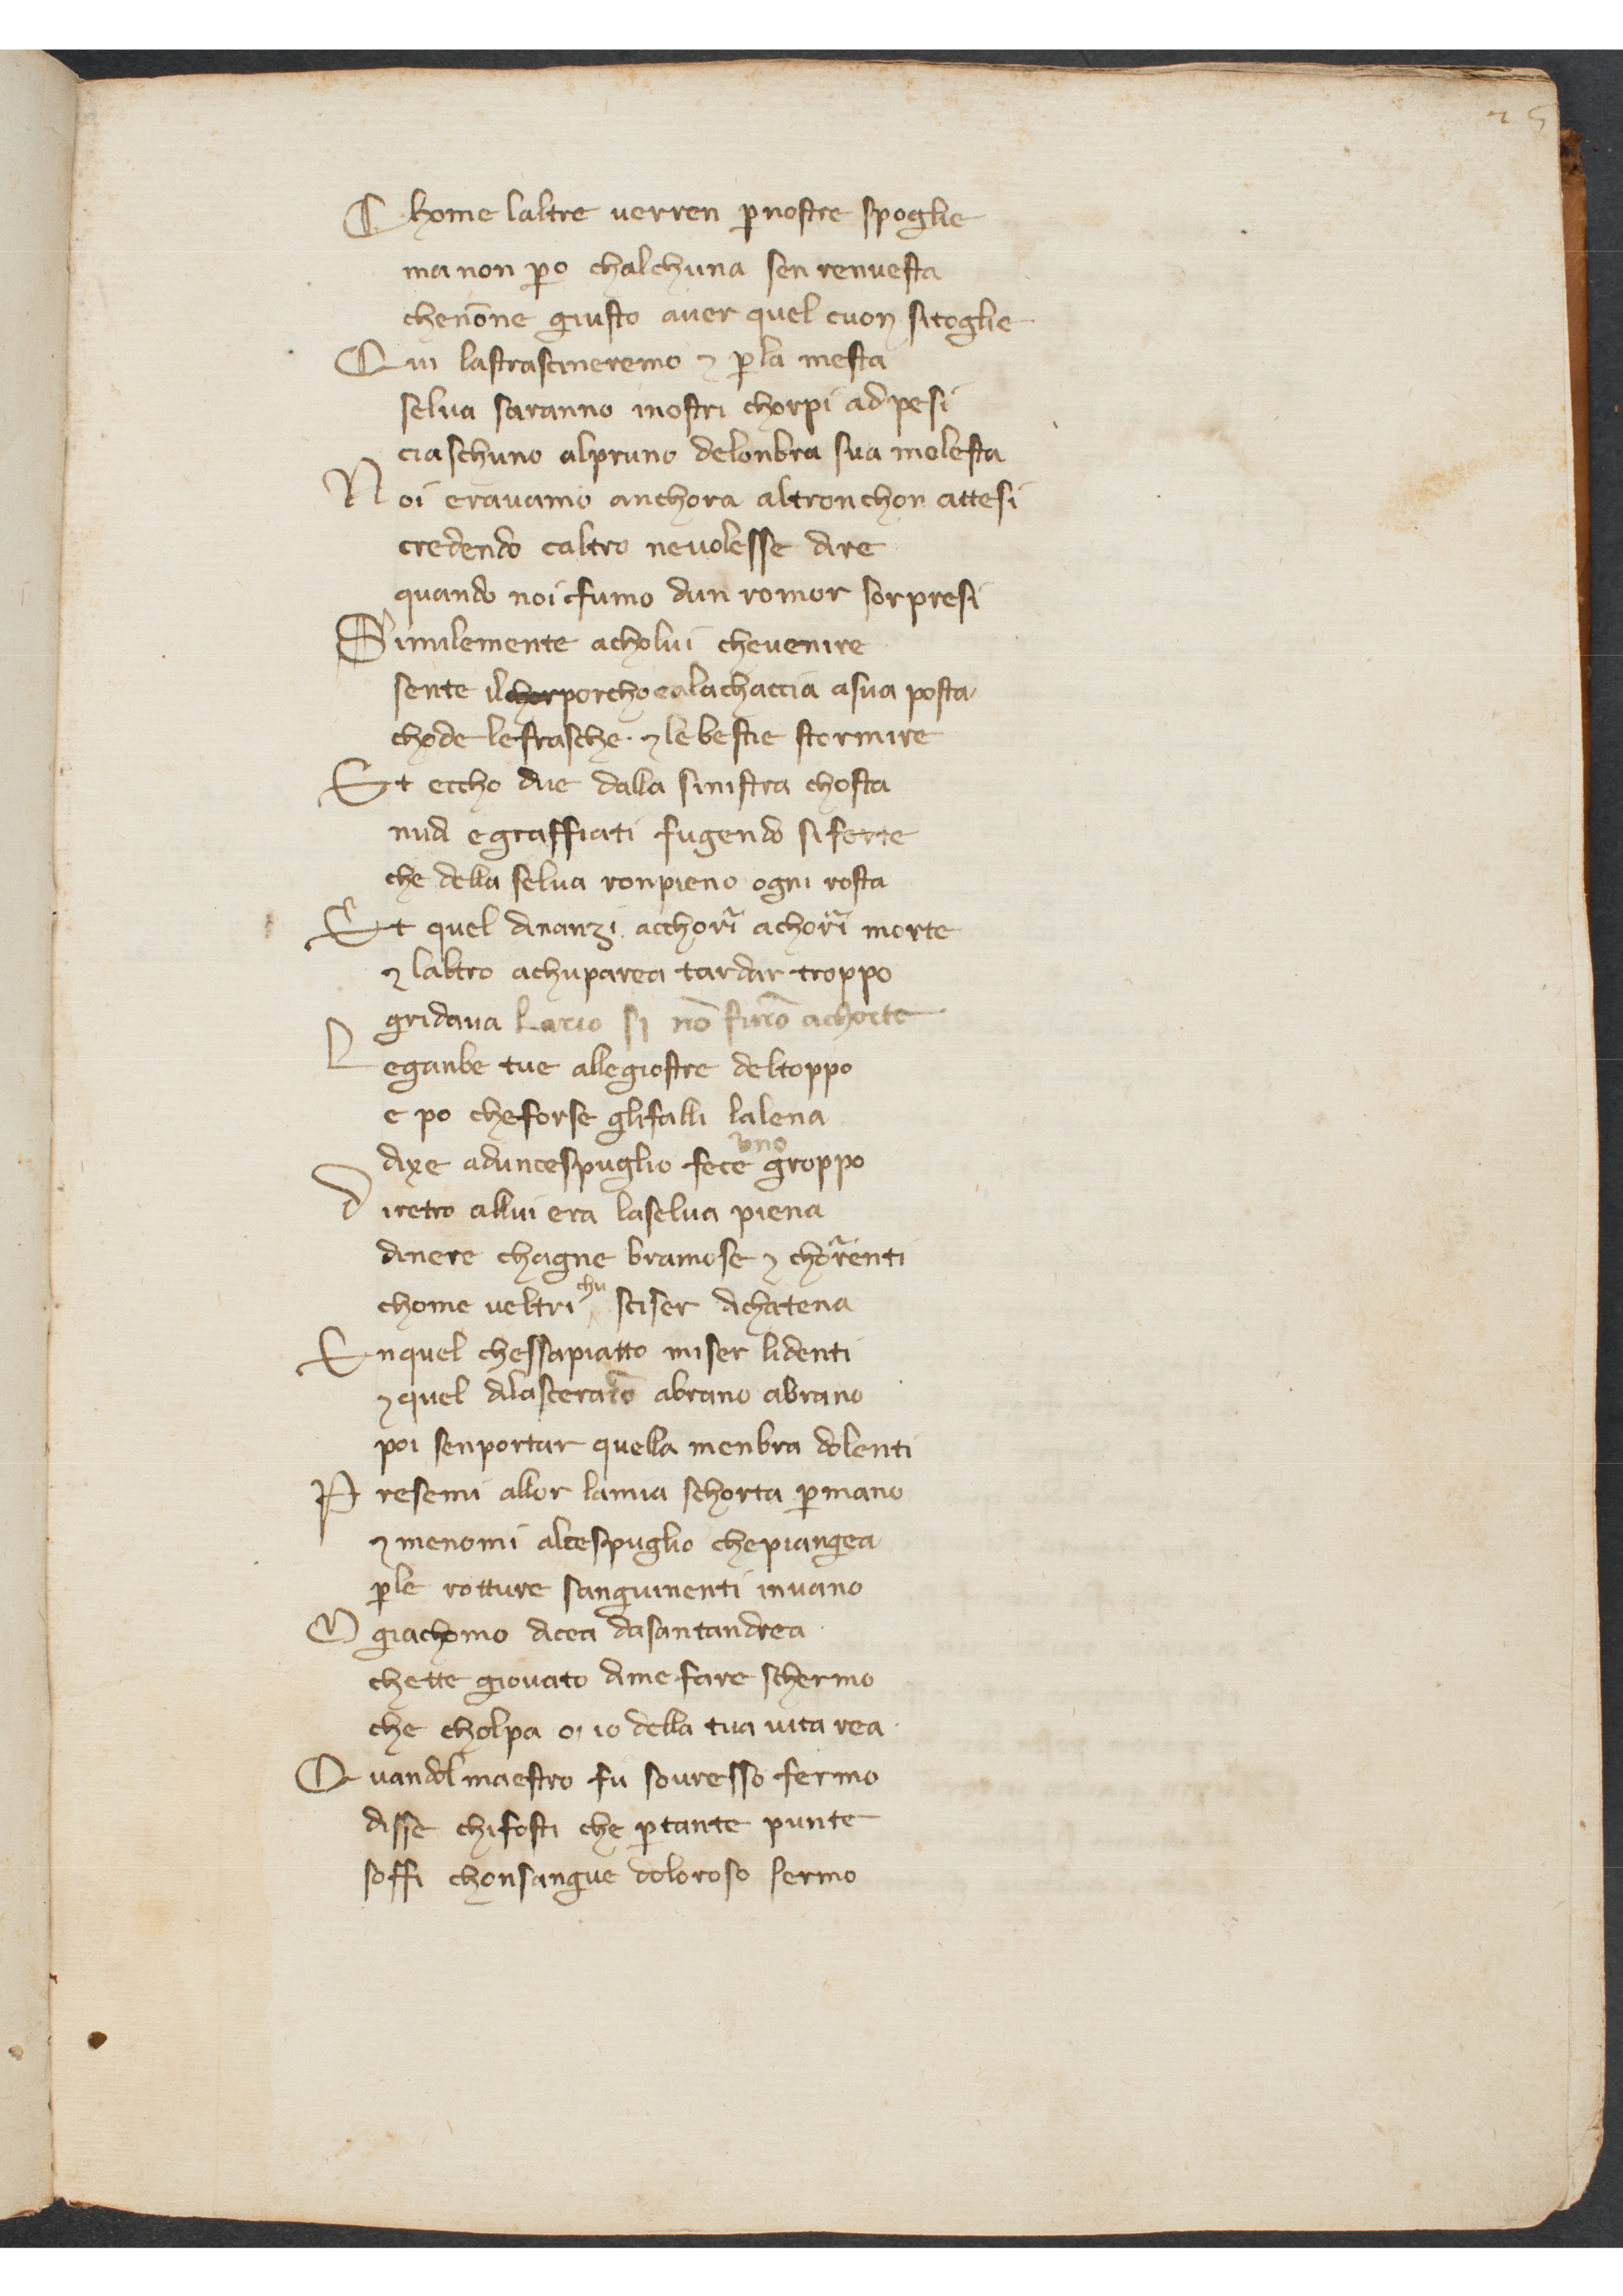 25
Chome laltre verren p̱ nostre spoglie
ma non p̱o chalchuna sen renvesta
chenōne giusto aver quel cuon sitoglie
Qui lastrascineremo ⁊ p̱ la mesta
selva saranno inostri chorpi adpesi
ciaschuno alpruno delonbra sua molesta
Noi eravamo anchora altronchon attesi
credendo caltro nevolesse dire
quando noi fumo dun romor sorpresi
Similemente acholui chevenire
sente il porcho ealachaccia asua posta
chode lefrasche · ⁊ le bestie stormire
Et eccho due dalla sinistra chosta
nudi egraffiati fugendo siforte
che della selva ronpieno ogni rosta
Et quel dinanzi acchorı̃ achorı̃ morte
⁊ laltro achuparea tardar troppo
gridava Lacio si nō furō achorte
Leganbe tue allegiostre deltoppo
e po cheforse glifalli lalena
dixe aduncespuglio fece uno groppo
diretro allui era laselva piena
dinere chagne bramose ⁊ chorenti
chome veltri chu sciser dichatena
Enquel chessapiatto miser lidenti
⁊ quel dilascerarō abrano abrano
poi senportar quella menbra dolenti
Presemi allor lamia schorta p̱ mano
⁊ menomi alcespuglio chepiangea
p̱ le rotture sanguinenti invano
O giachomo dicea dasantandrea
chette giovato dime fare schermo
che cholpa o io della tua vita rea
Quandol maestro fu sovresso fermo
disse chifosti che p̱ tante punte
soffi chonsangue doloroso sermo